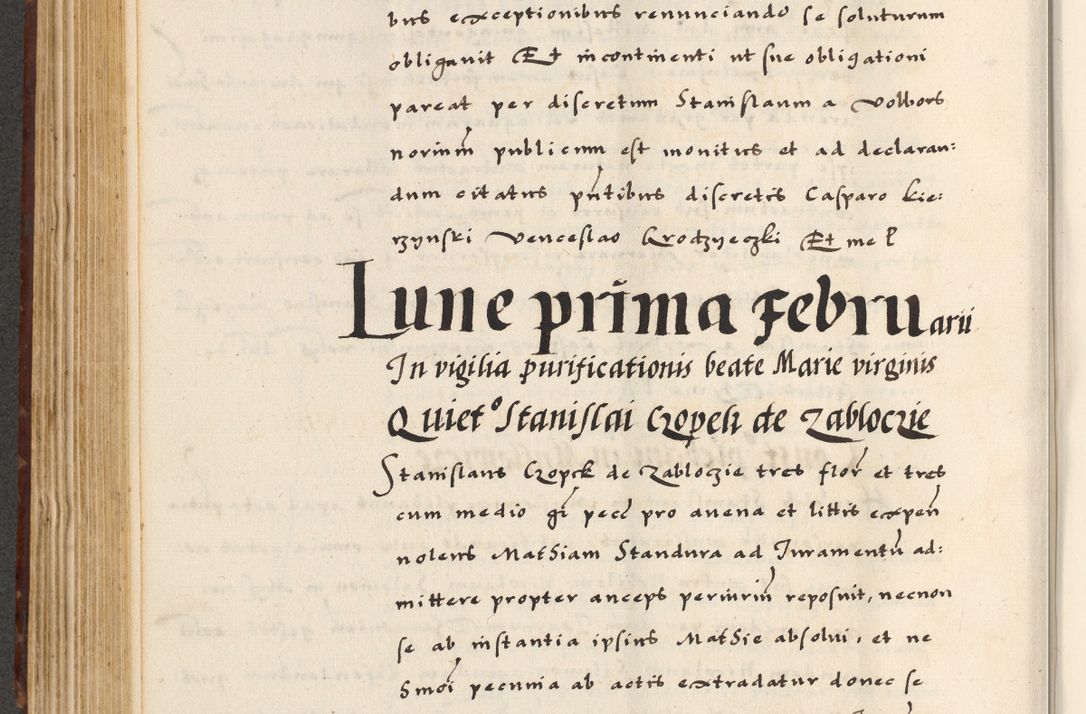 bus exceptionibus renunciando se soluturum
obligauit Et incontinenti ut sue obligationi
pareat per discretum Stanislaum a Volbors
norium̄ publicum est monitus et ad declaran:
dum citatus pn̄tibus discretis Casparo Kie:
rzynski Venceslao Grodzyeczki Et me P
Lune prima Februarii
In vigilia purificationis beate Marie virginis
Quiet° Stanislai Czopek de Zabloczie
Stanislaus Czopek de Zabloczie tres flor̄ et tres
cum medio gr̄ pecc̄ pro auena et littis expen̄
nolens Mathiam Standura ad Juramentū ad:
mittere propter anceps periurium̄ reposuit, necnon
se ab instantia ipsius Mathie absolui, et ne
Smoi pecunia ab actis extradatur donec se